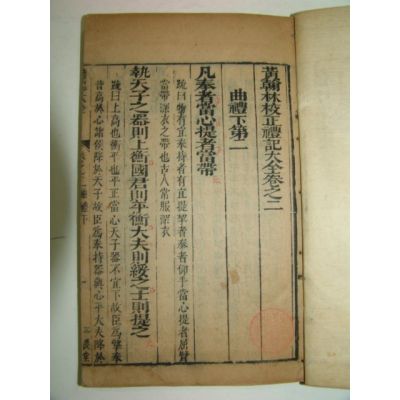 黃翰林校正禮記大全卷之二
曲禮下第二
凡奉者當心提者當帶
疏曰物有宜奉持者有宜提挈者奉者仰手當心提者屈臂
當帶深衣之帶也古人常服深衣
執天子之器則上衡國君則平衡大夫則綏之士則提之
疏曰上高也衡平也平正當心天子器不宜下故臣爲擎奉
皆高於心諸侯降於天子故臣爲奉持器與心平大夫降於